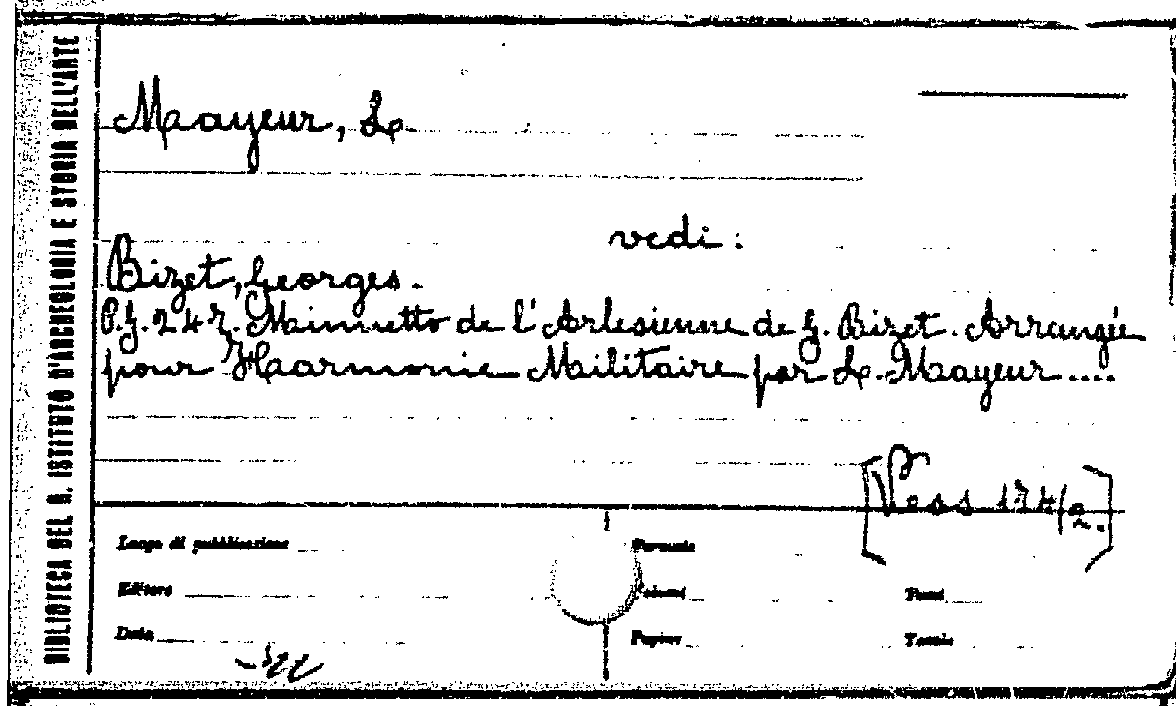 BIBLIOTECA DEL R. ISTITUTO D'ARCHEOLOGIA E STORIA DELL'ARTE
Maayeur, L.
vedi :
Bizet, Georges.
P.G. 247. Mainuetto de l'Arlesienne de G. Bizet. Arrangée
pour Haarmonie Militaire par L. Maayeur....
[Vess 174/2.]
Luogo di pubblicazione
Formato
Editore
Volumi
Tomi
Data
Pagine
Tavole